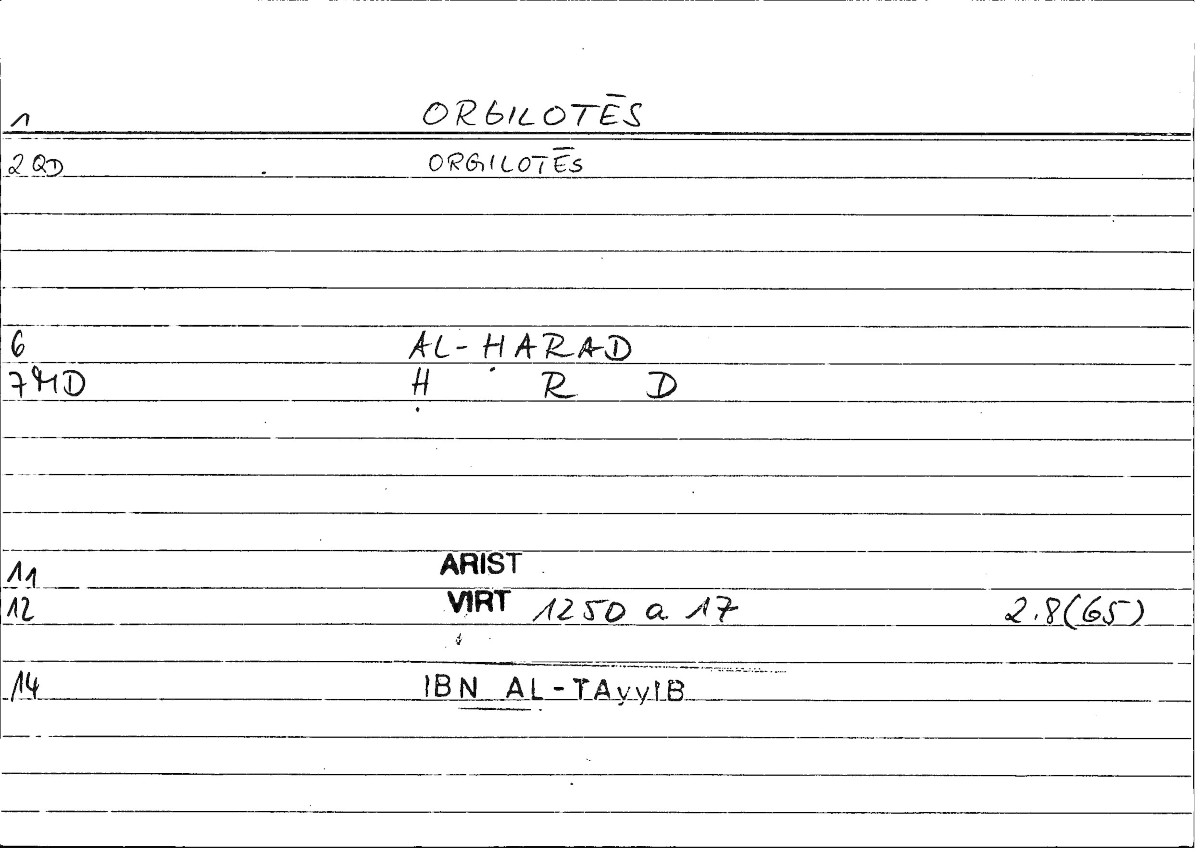 1 ORGILOTĒS
2 QD ORGILOTĒS
6 AL-ḤARAD
7 MD Ḥ R D
11 ARIST
12 VIRT 1250 a 17 2.8(65)
14 IBN AL-TAyyIB